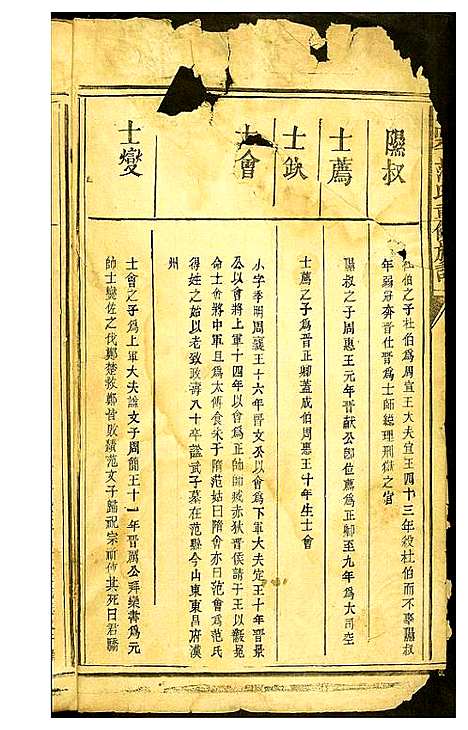 隰叔
杜伯之子杜伯為周宣王大夫宣王四十三年殺杜伯而不辜隰叔
年弱冠奔晉仕晉為士師總理刑獄之官
士蒍
隰叔之子周惠王元年晉獻公卽位蒍為正卿至九年為大司空
士缺
士蒍之子為晉正卿蓋成伯周惠王十年生士會
士會
小字季明周襄王十六年晉文公以會為下軍大夫定王十年晉景
公以會將上軍十四年以會為正帥師滅赤狄晉侯請于王以黻冕
命士會將中軍且為太傅食采于范姑曰隋會亦曰范會為范氏
得姓之始以老致政壽八十年諡武子墓在范縣今山東東昌府濮
州
士燮
士會之子為上軍大夫諡文子周簡王十一年晉厲公舜欒書為元
帥士燮佐之伐鄭楚救鄭晉敗績范文子歸祝宗祈使其死日君驕